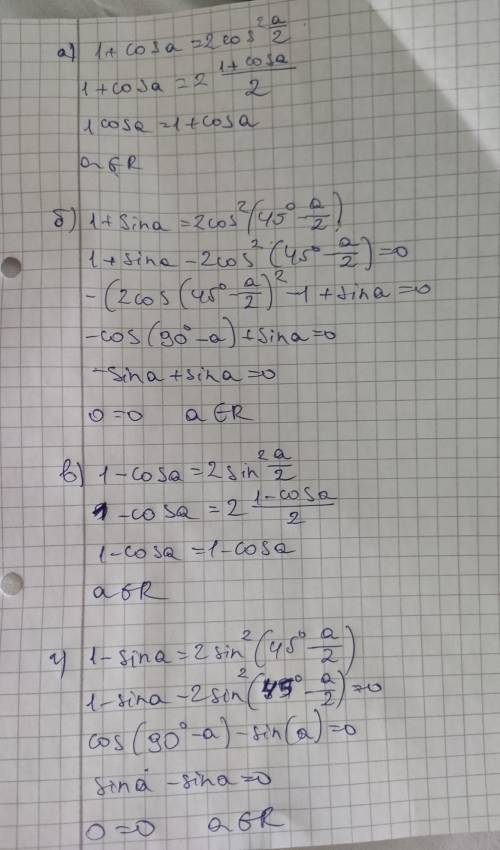 а) 1+cosa=2cos²a/2
1+cosa=2 (1+cosa)/2
1cosa=1+cosa
a∈R
б) 1+sina=2cos²(45°-a/2)
1+sina-2cos²(45°-a/2)=0
-(2cos(45°-a/2)²-1+sina=0
-cos(90°-a)+sina=0
-sina+sina=0
0=0 a∈R
в) 1-cosa=2sin²a/2
1-cosa=2 (1-cosa)/2
1-cosa=1-cosa
a∈R
г) 1-sina=2sin²(45°-a/2)
1-sina-2sin²(45°-a/2)=0
cos(90°-a)-sin(a)=0
sina-sina=0
0=0 a∈R